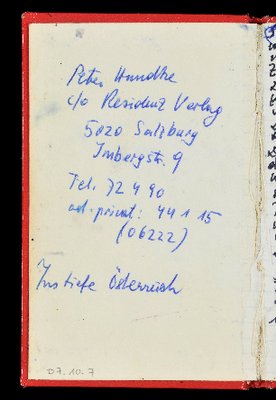 Peter Handke
c/o Residenz Verlag
5020 Salzburg
Imbergstr. 9
Tel. 72 4 90
od. privat: 44 1 15
(06222)
Ins tiefe Österreich
07.10.7